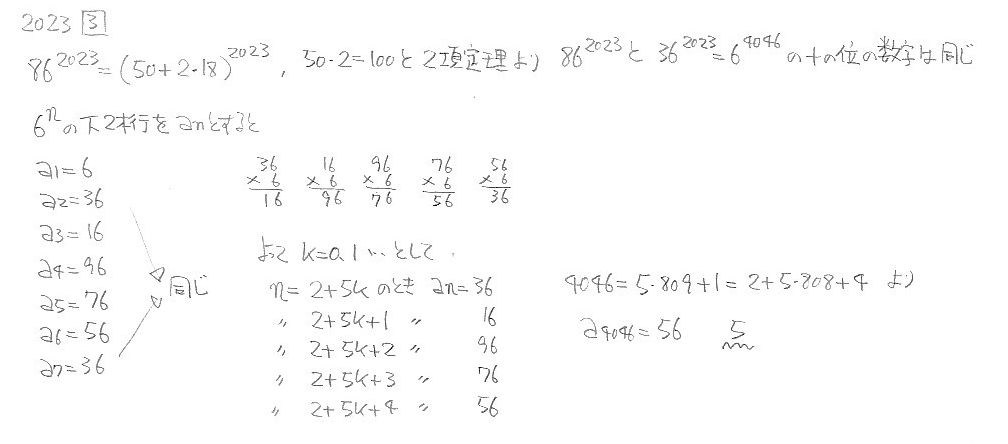 2023 3
86^2023=(50+2・18)^2023, 50・2=100と2項定理より 86^2023と36^2023=6^4046の十の位の数字は同じ
6^nの下2桁行をanとすると
a1=6
a2=36
a3=16
a4=96
a5=76
a6=56
a7=36
同じ
36 16 96 76 56
×6 ×6 ×6 ×6 ×6
16 96 76 56 36
よって k=0,1…として
n=2+5kのとき an=36
〃 2+5k+1 〃 16
〃 2+5k+2 〃 96
〃 2+5k+3 〃 76
〃 2+5k+4 〃 56
4046=5・809+1=2+5・808+4 より
a4046=56 5